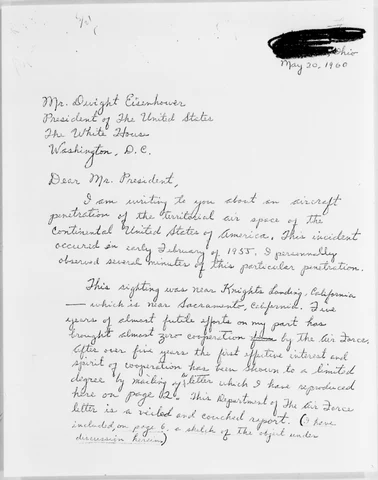 Ohio
May 20, 1960
Mr. Dwight Eisenhower
President of The United States
The White House
Washington, D.C.
Dear Mr. President,
I am writing to you about an aircraft
penetration of the territorial air space of the
Continental United States of America. This incident
occurred in early February of 1955. I personally
observed several minutes of this particular penetration.
This sighting was near Knights Landing, California
— which is near Sacramento, California. Five
years of almost futile efforts on my part has
brought almost zero cooperation by the Air Force.
After over five years the first effective interest and
spirit of cooperation has been shown to a limited
degree by mailing of a letter which I have reproduced
here on page 2. This Department of The Air Force
letter is a and couched report. (I have
included, on page 6, a sketch of the object under
discussion herein.)